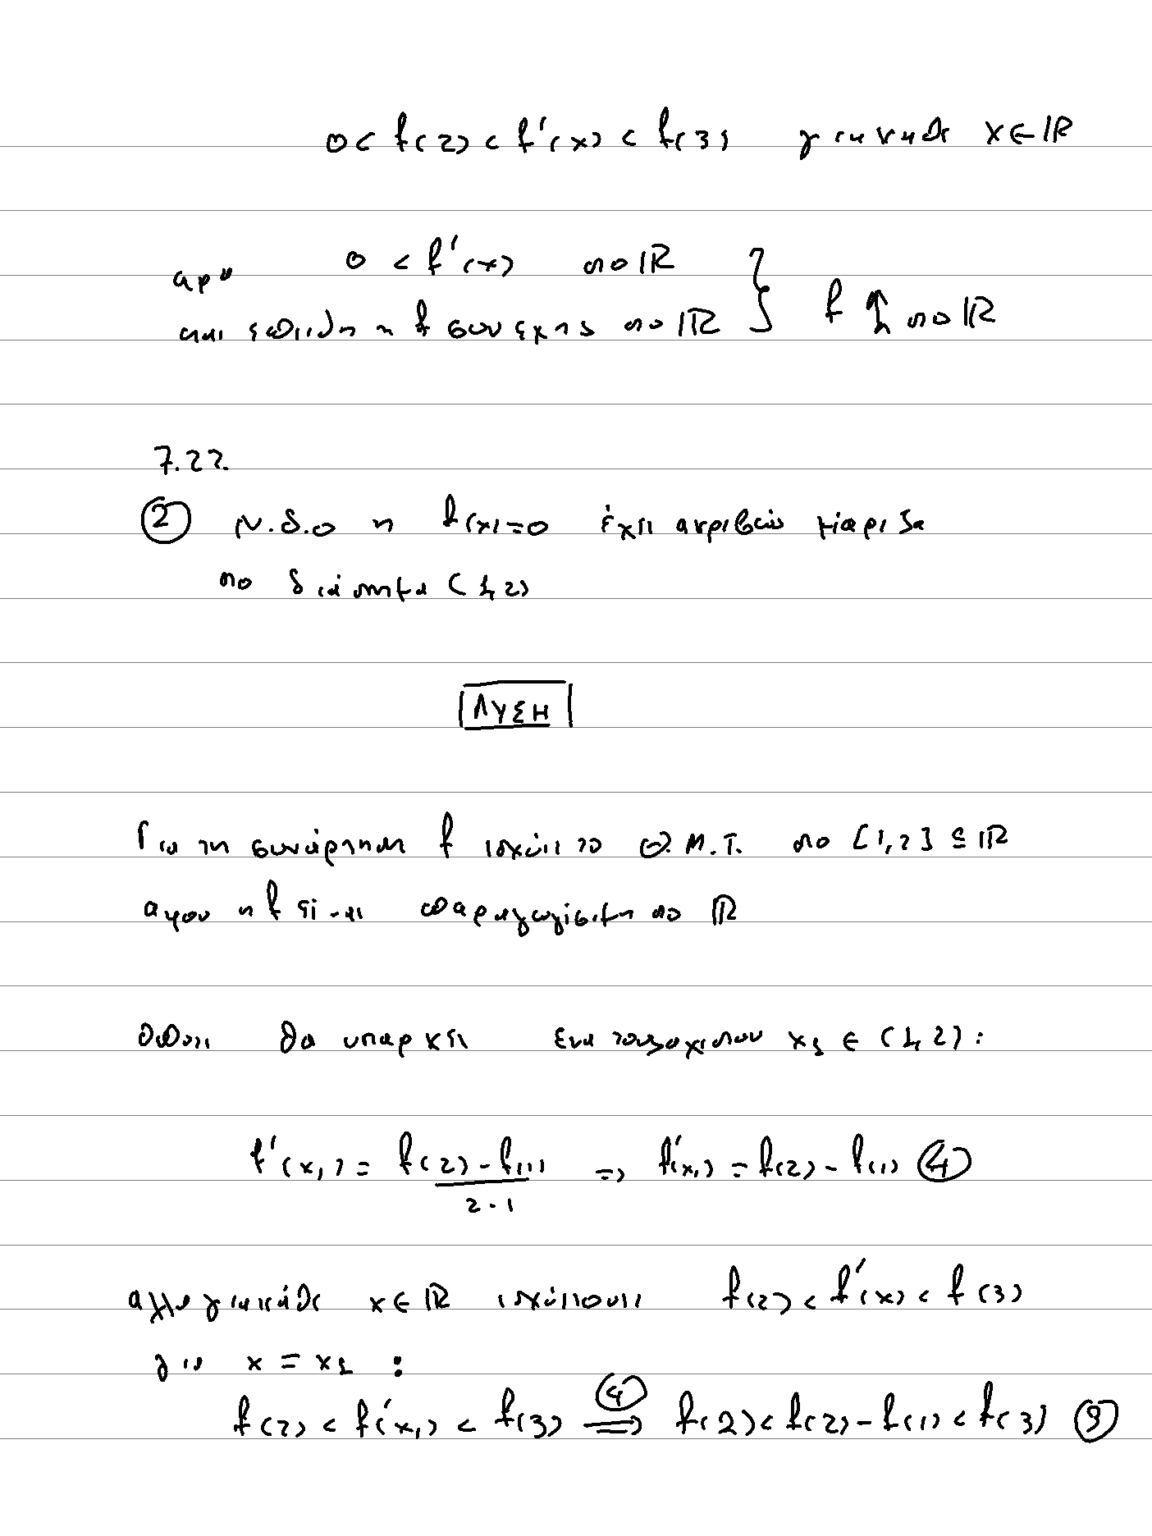 0 < f(2) < f'(x) < f(3) για κάθε x ∈ ℝ
αρα 0 < f'(x) στο ℝ
και επειδη η f συνεχης στο ℝ } f ↑ στο ℝ
7.22.
② Ν.δ.ο η f(x)=0 έχει ακριβώς μία ριζα
στο διάστημα (1,2)
ΛΥΣΗ
Για τη συνάρτηση f ισχύει το Θ.Μ.Τ. στο [1,2] ⊆ ℝ
αφου η f είναι παραγωγίσιμη στο ℝ
οποτε θα υπαρχει ενα τουλαχιστον x₁ ∈ (1,2) :
f'(x₁) = f(2) - f(1) / 2-1 ⇒ f'(x₁) = f(2) - f(1) ④
αλλα για κάθε x ∈ ℝ ισχύει οτι f(2) < f'(x) < f(3)
για x = x₁ :
f(2) < f'(x₁) < f(3) ④⟹ f(2) < f(2) - f(1) < f(3)